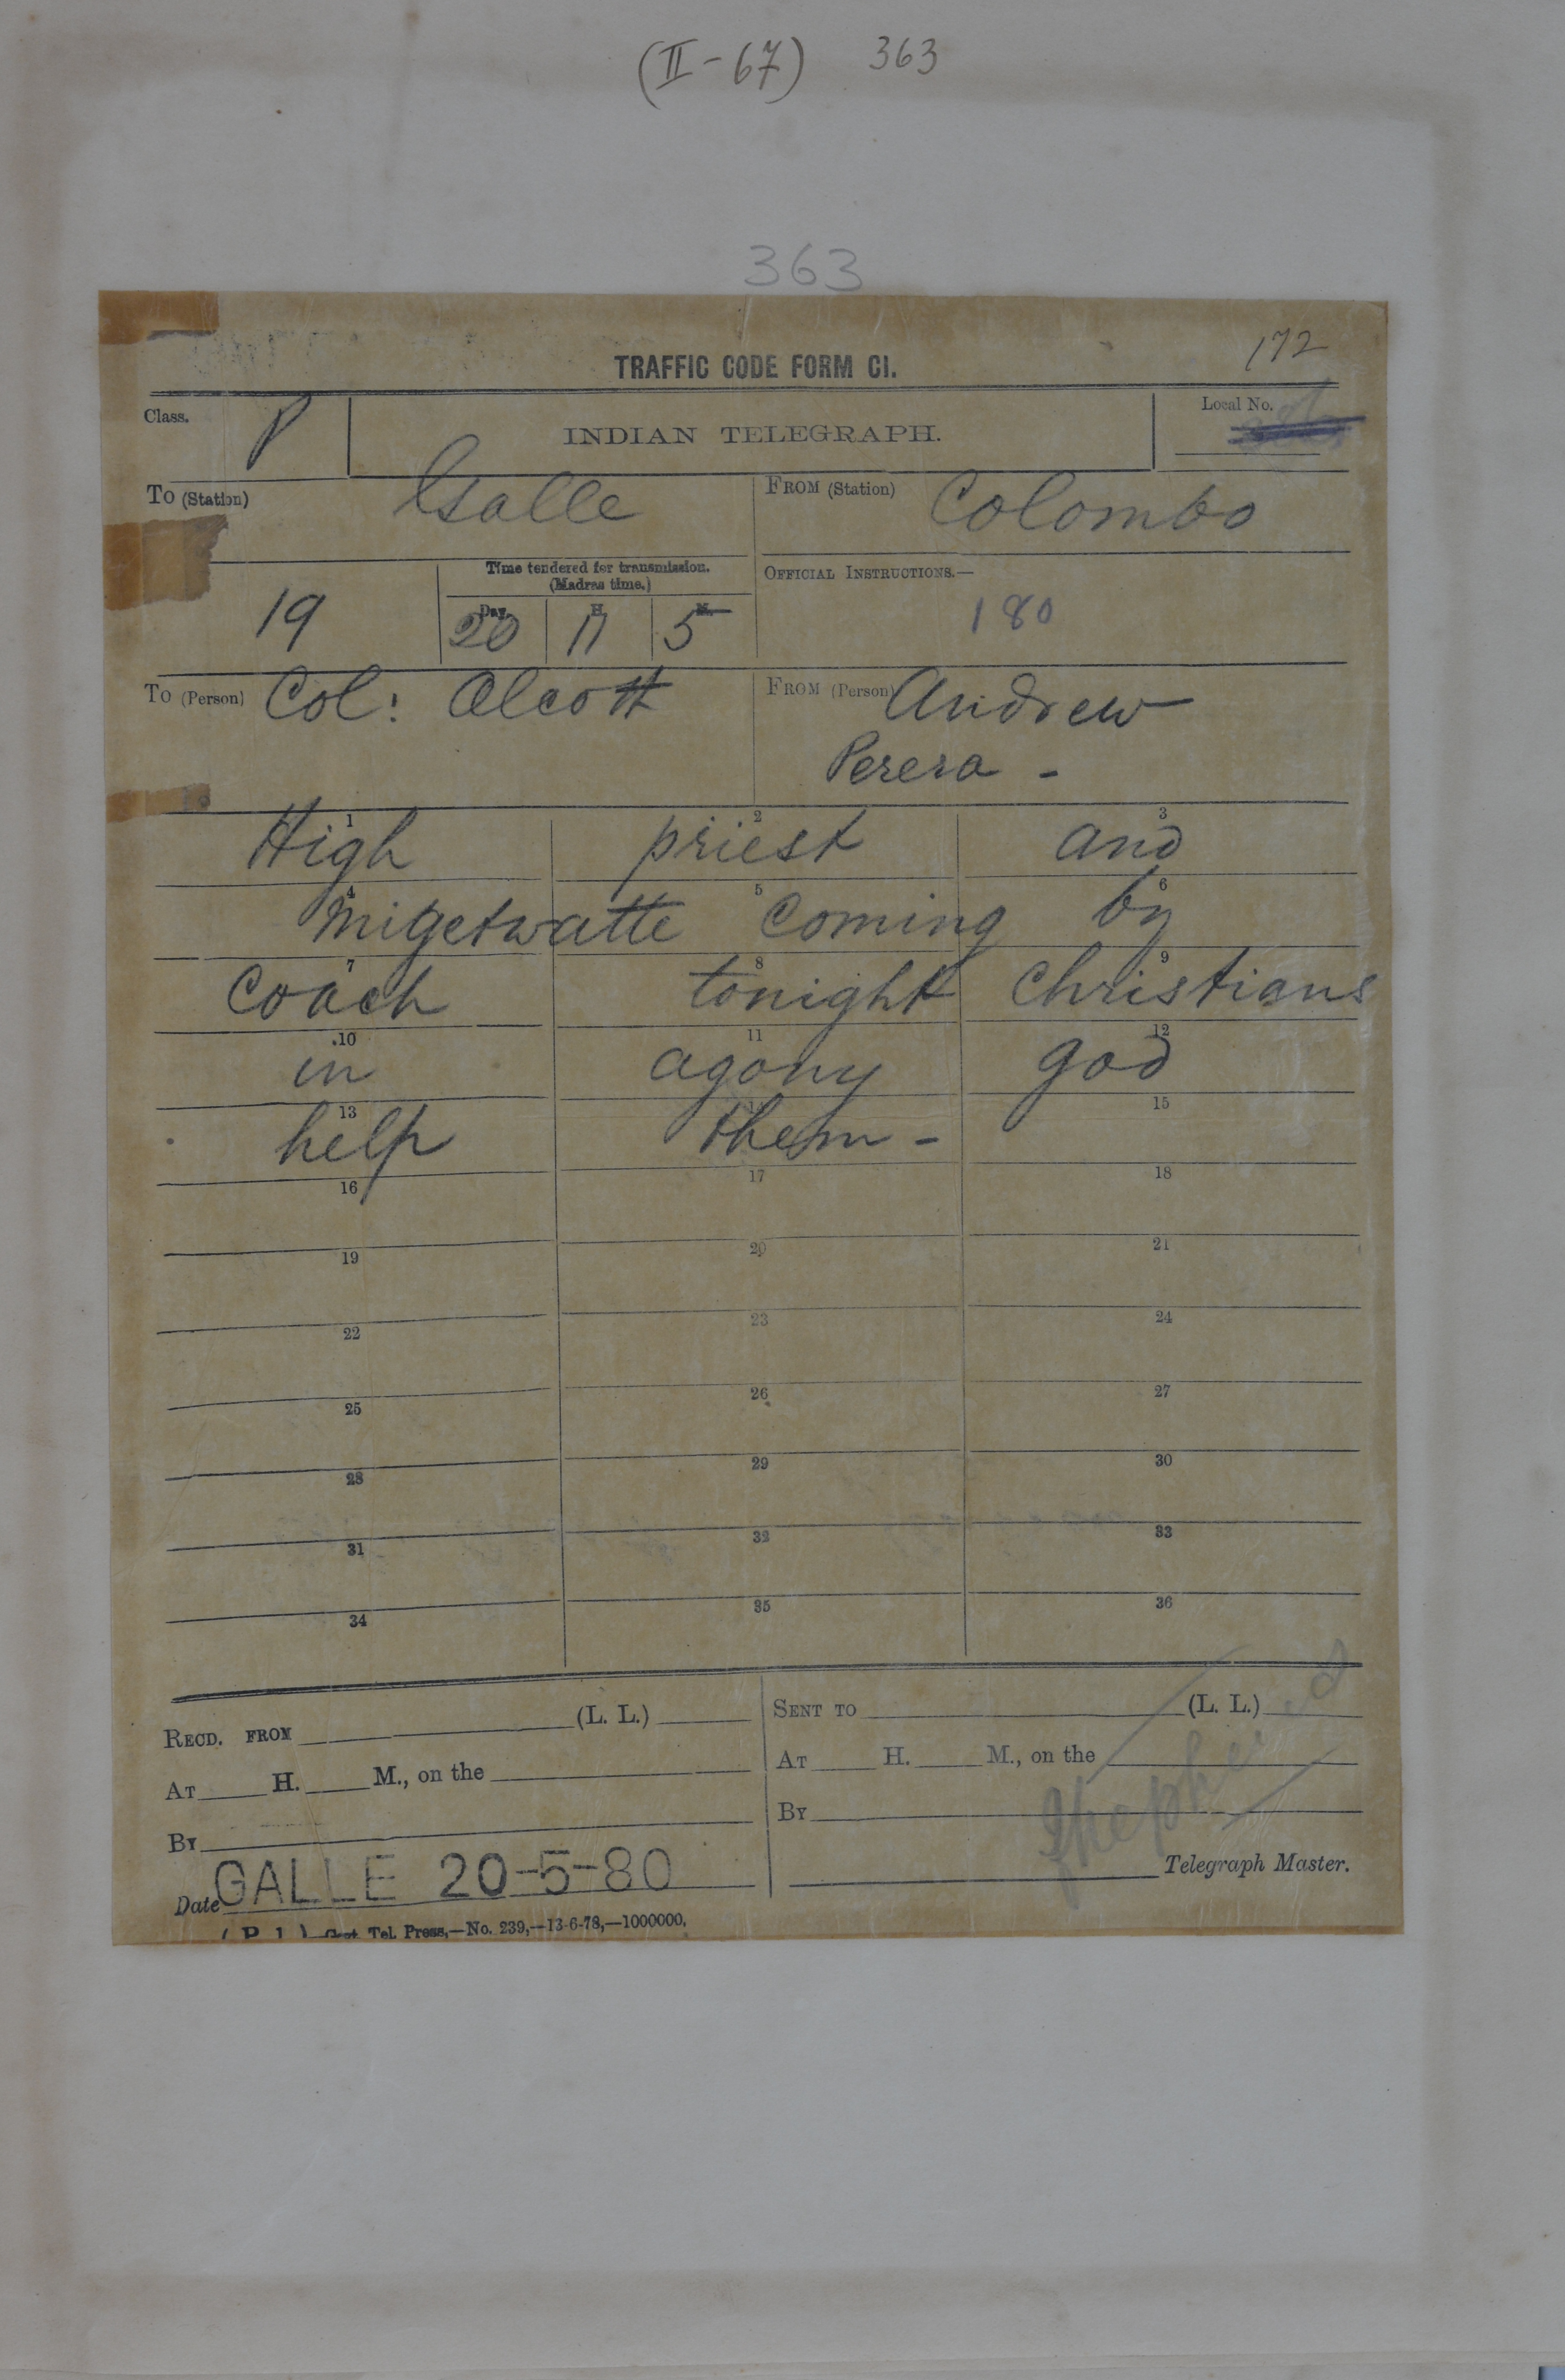 (II-67) 363
363
172
TRAFFIC CODE FORM CI.
Class. P
INDIAN TELEGRAPH.
Local No.
To (Station) Galle
FROM (Station) Colombo
19
Time tendered for transmission.
(Madras time.)
Day. H. M.
20 11 5
OFFICIAL INSTRUCTIONS.—
180
To (Person) Col: Olcott
FROM (Person) Andrew
Perera -
1 2 3
High priest and
4 5 6
Migetwatte coming by
7 8 9
Coach tonight Christians
10 11 12
in agony god
13 15
help them -
16 17 18
19 20 21
22 23 24
25 26 27
28 29 30
31 32 33
34 35 36
RECD. FROM (L. L.)
AT H. M., on the
BY
Date GALLE 20-5-80
SENT TO (L. L.)
AT H. M., on the
BY
Telegraph Master.
Tel. Press,—No. 239,—13-6-78,—1000000.